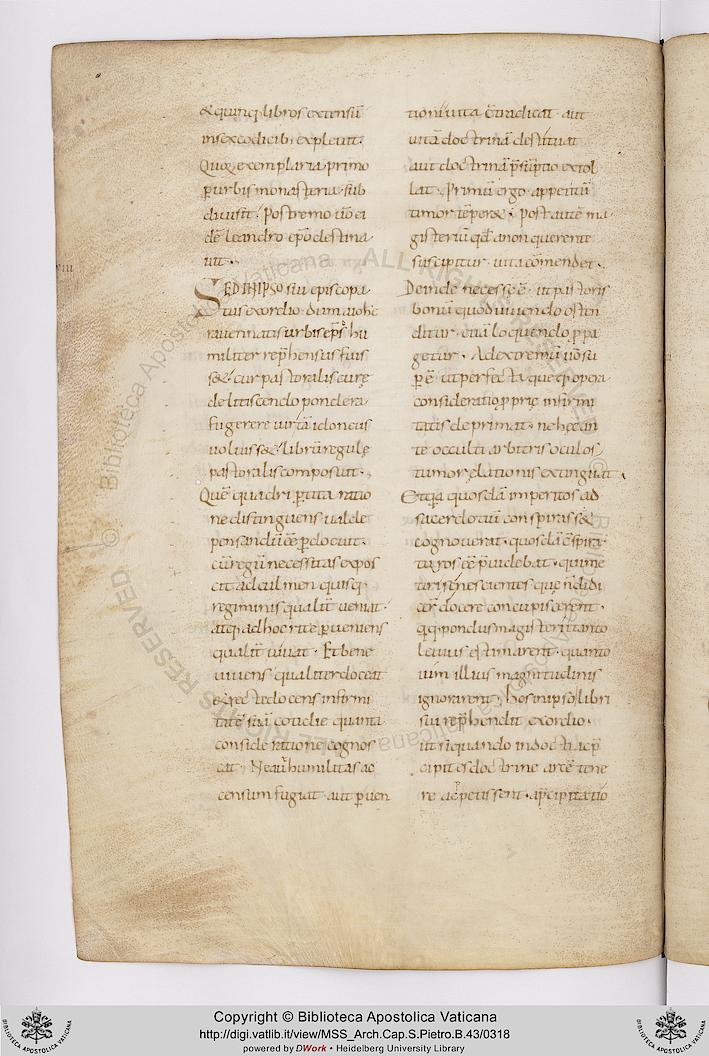 & quinq; libros extensũ
in sex codicib; expleuit.
Quę exemplaria primo
ꝑ urbis monasteria sub
diuisit. Postremo ũo ei
dẽ leandro ep̃o destina
uit.
VIII
SED IN IPSO sui episcopa
tus exordio. dum a iohe
rauennatis urbis ep̃s hu
militer rep̃hensus fuis
s& cur pastoralis curę
delitiscendo pondera
fugere
idoneus
uoluiss& librũ regulę
pastoralis composuit.
Quẽ quadripertita ratio
ne distinguens ualde
pensandũ eẽ ꝑdocuit.
cũ regũ necessitas expos
cit ad culmen quisq;
regiminis qualit̃ ueniat.
atq; ad hoc rite ꝑueniens
qualit̃ uiuat. Et bene
uiuens qualiter doceat
& recte docens infirmi
tatẽ suã cotidie quanta
consideratione cognos
cat. Ne aut̃ humilitas ac
censum fugiat. aut ꝑuen
tioni uita c̃tradicat. aut
uitã doctrinã destituat
aut doctrinã p̃sũptio extol
lat. Primũ ergo appetitũ
timor tẽper&. post autẽ ma
gisteriũ qđ a non querente
suscipitur. uita cõmendet.
Deinde necesse ẽ. ut pastoris
bonũ quod uiuendo osten
ditur. etiã loquendo ꝓpa
getur. Ad extremũ ũo su
ꝑ ẽ ut perfecta quęq; opera
consideratio ꝓprię infirmi
tatis deprimat. ne hęc an
te occulti arbitris oculos
tumor elationis extinguat.
Et q̃a quosdã imperitos ad
sacerdotiũ conspirass&
cognouerat. quosdã c̃spira
turos eẽ p̃uidebat. qui me
tiri se nescientes quę ñ didi
cer̃ docere concupiscerent.
q; pondus magisterii tanto
leuius estimarent. quanto
uim illius magnitudinis
ignorarent. hos in ipso libri
sui rep̃hendit exordio.
ut si quando indocti ac p̃
cipites doctrine arcẽ tene
re appetissent. a p̃cipitatio
Copyright © Biblioteca Apostolica Vaticana
http://digi.vatlib.it/view/MSS_Arch.Cap.S.Pietro.B.43/0318
powered by DWork • Heidelberg University Library